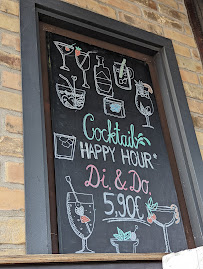 Cocktail
HAPPY HOUR*
Di. & Do.
5,90€